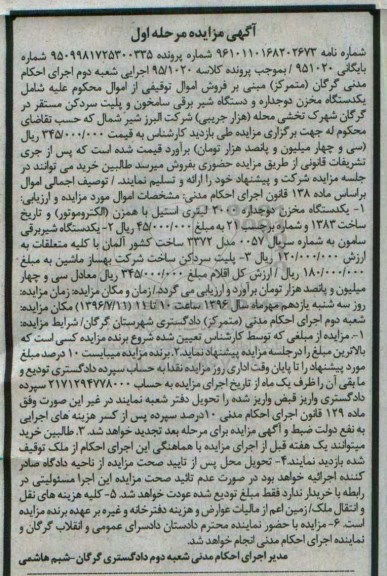 آگهی مزایده مرحله اول
شماره نامه ۹۶۱۰۱۱۰۱۶۸۲۰۲۶۷۳ شماره پرونده ۹۵۰۹۹۸۱۷۲۵۳۰۰۳۳۵ شماره
بایگانی ۹۵۱۰۲۰ / بموجب پرونده کلاسه ۹۵/۱۰۲۰ اجرایی شعبه دوم اجرای احکام
مدنی گرگان (متمرکز) مبنی بر فروش اموال توقیفی از اموال محکوم علیه شامل
یکدستگاه مخزن دوجداره و دستگاه شیر برقی سامخون و پلیت سردکن مستقر در
گرگان شهرک تخشی محله (هزار جریبی) شرکت البرز شیر شمال که حسب تقاضای
محکوم له جهت برگزاری مزایده طی بازدید کارشناس به قیمت ۳۴۵/۰۰۰/۰۰۰ ریال
(سی و چهار میلیون و پانصد هزار تومان) برآورد قیمت شده است که پس از جری
تشریفات قانونی از طریق مزایده حضوری بفروش میرسد طالبین خرید می توانند در
جلسه مزایده شرکت و پیشنهاد خود را ارائه و تسلیم نمایند. / توصیف اجمالی اموال
براساس ماده ۱۳۸ قانون اجرای احکام مدنی: مشخصات اموال مورد مزایده و ارزیابی:
۱- یکدستگاه مخزن دوجداره ۳۰۰۰ لیتری استیل با همزن (الکتروموتور) و تاریخ
ساخت ۱۳۸۳ و شماره برچسب ۲۱ به مبلغ ۴۵/۰۰۰/۰۰۰ ریال ۲- یکدستگاه شیربرقی
سامون به شماره سریال ۰۰۵۷ مدل ۳۳۷۲ ساخت کشور آلمان با کلیه متعلقات به
ارزش ۱۲۰/۰۰۰/۰۰۰ ریال ۳- پلیت سردکن ساخت شرکت بهساز ماشین به مبلغ
۱۸۰/۰۰۰/۰۰۰ ریال / ارزش کل اقلام مبلغ ۳۴۵/۰۰۰/۰۰۰ ریال معادل سی و چهار
میلیون و پانصد هزار تومان برآورد و ارزیابی می گردد. / زمان و مکان مزایده: زمان مزایده:
روز سه شنبه یازدهم مهرماه سال ۱۳۹۶ ساعت ۱۰ تا ۱۱ (۱۳۹۶/۷/۱۱) مکان مزایده:
شعبه دوم اجرای احکام مدنی (متمرکز) دادگستری شهرستان گرگان/ شرایط مزایده:
۱- مزایده از مبلغی که توسط کارشناس تعیین شده شروع برنده مزایده کسی است که
بالاترین مبلغ را در جلسه مزایده پیشنهاد نماید ۲. برنده مزایده میبایست ۱۰ درصد مبلغ
مورد پیشنهاد را تا پایان وقت اداری روز مزایده نقدا به حساب سپرده دادگستری تودیع و
ما بقی آن را ظرف یک ماه از تاریخ اجرای مزایده به حساب ۲۱۷۱۲۹۴۷۷۸۰۰۰ سپرده
دادگستری واریز قبض واریز شده را تحویل دفتر شعبه نمایند در غیر این صورت وفق
ماده ۱۲۹ قانون اجرای احکام مدنی ۱۰درصد سپرده پس از کسر هزینه های اجرایی
به نفع دولت ضبط و آگهی مزایده برای مرحله بعد تجدید خواهد شد. ۳. طالبین خرید
میتوانند یک هفته قبل از اجرای مزایده با هماهنگی این اجرای احکام از ملک توقیف
شده بازدید نمایند. ۴- تحویل محل پس از تایید صحت مزایده از ناحیه دادگاه صادر
کننده اجرائیه خواهد بود در صورت عدم تائید صحت مزایده این اجرا مسئولیتی در
رابطه با خریدار ندارد فقط مبلغ تودیع شده عودت خواهد شد. ۵- کلیه هزینه های نقل
و انتقال ملک/ زمین اعم از مالیات عوارض و هزینه دفترخانه و غیره بر عهده برنده مزایده
است. ۶- مزایده با حضور نماینده محترم دادستان دادسرای عمومی و انقلاب گرگان و
نماینده اجرای احکام مدنی انجام خواهد شد.
مدیر اجرای احکام مدنی شعبه دوم دادگستری گرگان-شبنم هاشمی